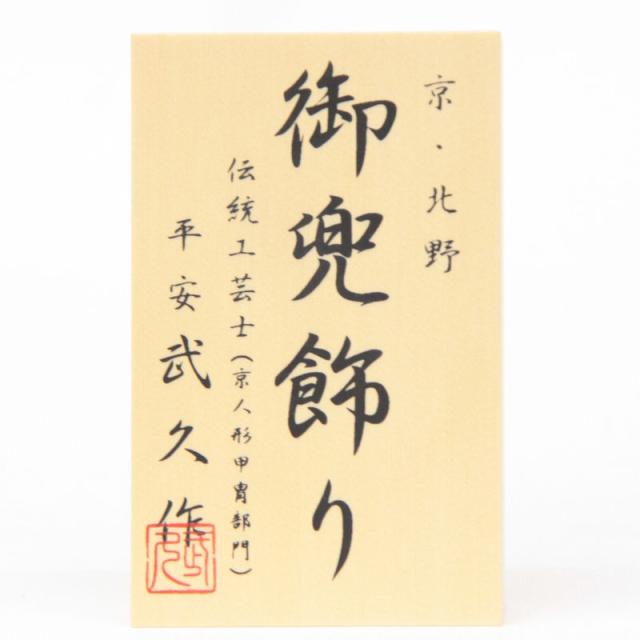 京・北野
御兜飾り
伝統工芸士(京人形甲冑部門)
平安武久作